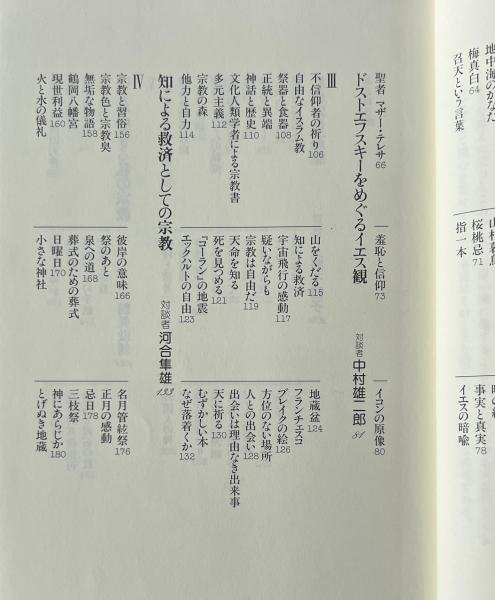 地中海のかなた
梅真白 64
召天という言葉
桜桃忌 71
指一本
事実と真実 78
イエスの暗喩
聖者 マザー・テレサ 66
羞恥と信仰 73
イコンの原像 80
ドストエフスキーをめぐるイエス観 対談者 中村雄二郎 81
III
不信仰者の祈り 106
自由なイスラム教
祭器と食器 108
正統と異端
神話と歴史 110
文化人類学者による宗教書
多元主義 112
宗教の森
他力と自力 114
山をくだる 115
知による救済
宇宙飛行の感動 117
疑いながらも
宗教は自由だ 119
天命を知る
死を見つめる 121
『コーラン』の地震
エックハルトの自由 123
地蔵盆 124
フランチェスコ
ブレイクの絵 126
方位のない場所
人との出会い 128
出会いは理由なき出来事
天に祈る 130
むずかしい本
なぜ落着くか 132
知による救済としての宗教 対談者 河合隼雄 133
IV
宗教と習俗 156
宗教色と宗教臭
無垢な物語 158
鶴岡八幡宮
現世利益 160
火と水の儀礼
彼岸の意味 166
祭のあと
泉への道 168
葬式のための葬式
日曜日 170
小さな神社
名月管絃祭 176
正月の感動
忌日 178
三枝祭
神にあらじか 180
とげぬき地蔵